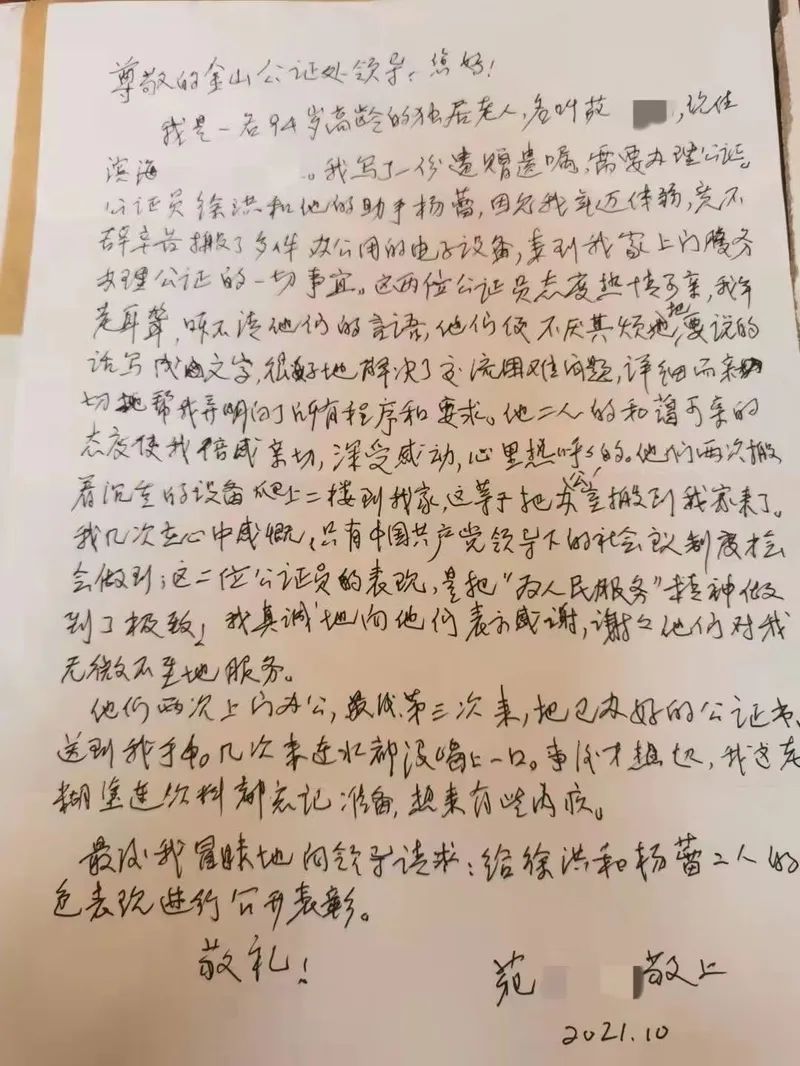 尊敬的金山公证处领导：您好！
我是一名94岁高龄的独居老人，名叫范，现住
滨海。我写了一份遗赠遗嘱，需要办理公证。
公证员徐洪和他的助手杨蕾，因见我年迈体弱，竟不
辞辛苦搬了多件办公用的电子设备，来到我家上门服务
办理公证的一切事宜。这两位公证员态度热情可亲，我年
老耳聋，听不清他们的言语，他们便不厌其烦地把要说的
话写成文字，很好地解决了交流困难问题，详细而亲
切地帮我弄明白了所有程序和要求。他二人的和蔼可亲的
态度使我倍感亲切，深受感动，心里热呼呼的。他们两次搬
着沉重的设备爬上二楼到我家，这等于把办公室搬到我家来了。
我几次在心中感慨，只有中国共产党领导下的社会主义制度才会
会做到；这二位公证员的表现，是把“为人民服务”精神做
到了极致！我真诚地向他们表示感谢，谢谢他们对我
无微不至地服务。
他们两次上门办公，最后第三次来，把已办好的公证书、
送到我手中。几次来连水都没喝上一口。事后才想起，我这老
糊涂连饮料都忘记准备，想来有些内疚。
最后我冒昧地向领导请求：给徐洪和杨蕾二人的
色表现进行公开表彰。
敬礼！
范 敬上
2021.10